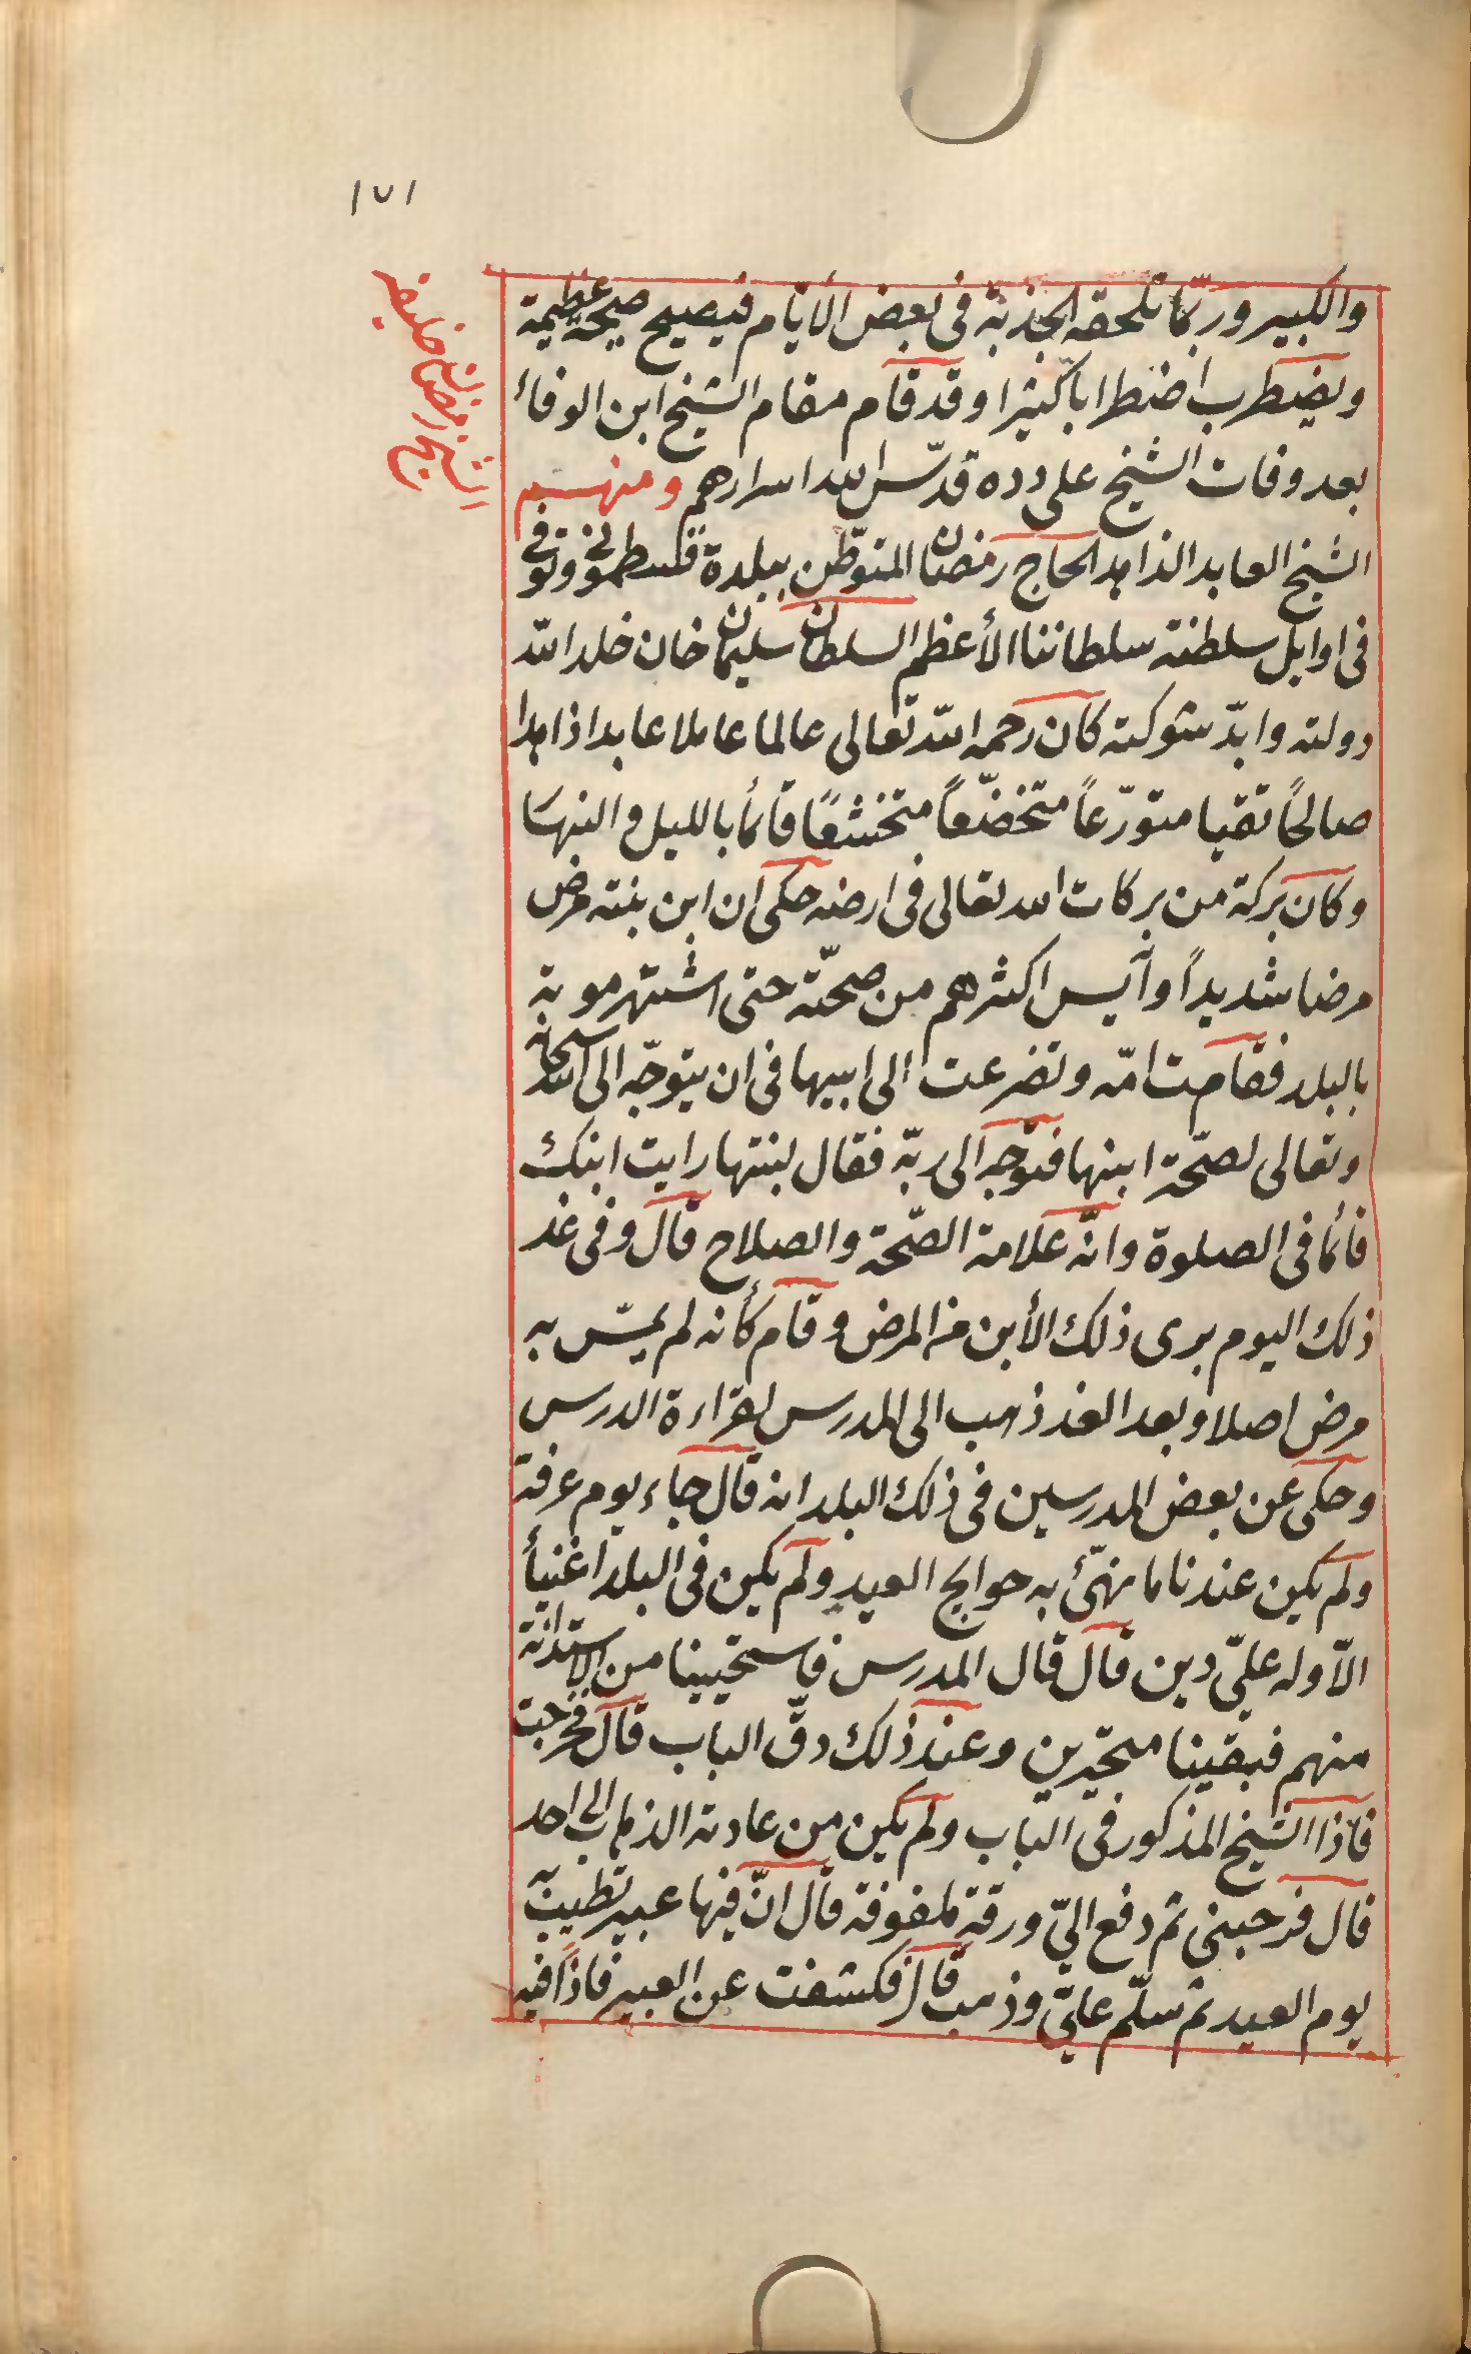 ١٧١
الشيخ رمضان خليفه
والكبير وربّما تلحقه الجذبة فى بعض الأيّام فيصيح صيحة عظيمة
ويضطرب اضطرابا كثيرا وقد قام مقام الشيخ ابن الوفاء
بعد وفات الشيخ على دده قدّس الله اسرارهم ومنهم
الشيخ العابد الذاهد الحاج رمضان المتوطّن ببلدة قسطمونى وتوفى
فى اوايل سلطنة سلطاننا الأعظم السلطان سليمان خان خلد الله
دولته وابدّ شوكته كان رحمه الله تعالى عالما عاملا عابدا ذاهدا
صالحًا تقيا متورّعاً متخضّعاً متخشعًا قائما بالليل والنهار
وكان بركة من بركات الله تعالى فى ارضه حكى ان ابن بنته مرض
مرضا شديداً وآيس اكثرهم من صحّته حتى اشتهر موته
بالبلد فقامت امّه وتضرعت الى ابيها فى ان يتوجّه الى الله سبحانه
وتعالى لصحّة ابنها فتوّجه الى ربّه فقال لبنتها رايت ابنك
قائما فى الصلوة وانّه علامة الصّحة والصلاح قال وفى غد
ذلك اليوم برى ذلك الأبن من المرض وقام كأنه لم يمسّ به
مرض اصلا وبعد الغد ذهب الى المدرس لقراءة الدرس
وحكى عن بعض المدرسين فى ذلك البلد انه قال جاء يوم عرفة
ولم يكن عندنا ما نهيّئ به حوايج العيد ولم يكن فى البلد اغنيأ
الّا وله علىّ دين قال قال المدرس فاستحيينا من الاستدانة
منهم فبقينا متحيّرين وعند ذلك دقّ الباب قال فخرجت
فاذا الشيخ المذكور فى الباب ولم يكن من عادته الذهاب الى احد
قال فرحبنى ثم دفع الىّ ورقة ملفوفة قال انّ فيها عبير تطيّبه
يوم العيد ثم سلّم علىّ وذهب قال فكشفت عن العبير فاذاً فيه